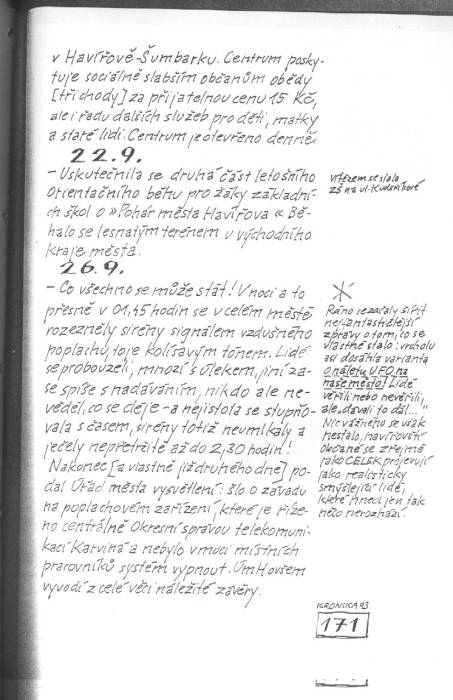 v Havířově-Šumbarku. Centrum posky-
tuje sociálně slabším občanům obědy
[tři chody] za přijatelnou cenu 15 Kč,
ale i řadu dalších služeb pro děti, matky
a staré lidi. Centrum je otevřeno denně.
22.9.
- Uskutečnila se druhá část letošního
Orientačního běhu pro žáky základní-
ch škol o »Pohár města Havířova« Bě-
halo se lesnatým terénem u východního
kraje města.
Vítězem se stala
ZŠ na ul. K. Úderníkové
26.9.
- Co všechno se může stát! V noci a to
přesně v 01,45 hodin se v celém městě
rozezněly sirény signálem vzdušného
poplachu, to je kolísavým tónem. Lidé
se probouzeli, mnozí s úlekem, jiní za-
se spíše s nadáváním, nikdo ale ne-
věděl, co se děje - a nejistota se stupňo-
vala s časem, sirény totiž neumlkaly a
ječely nepřetržitě až do 2,30 hodin!
Nakonec [a vlastně již druhého dne] po-
dal Úřad města vysvětlení: šlo o závadu
na poplachovém zařízení, které je říze-
no centrálně Okresní správou telekomuni-
kací Karviná a nebylo v moci místních
pracovníků systém vypnout. ÚmH ovšem
vyvodí z celé věci náležité závěry.
Ráno se začaly šířit
nejfantastičtější
zprávy o tom, co se
vlastně stalo: vrcholu
asi dosáhla varianta
o náletu UFO na
naše město! Lidé
věřili nebo nevěřili,
ale "dávali to dál..."
Nic vážného se však
nestalo, havířovští
občané se zřejmě
jako CELEK projevují
jako realisticky
smýšlející lidé,
které hned jen tak
něco nerozhází.
KRONIKA 93
171